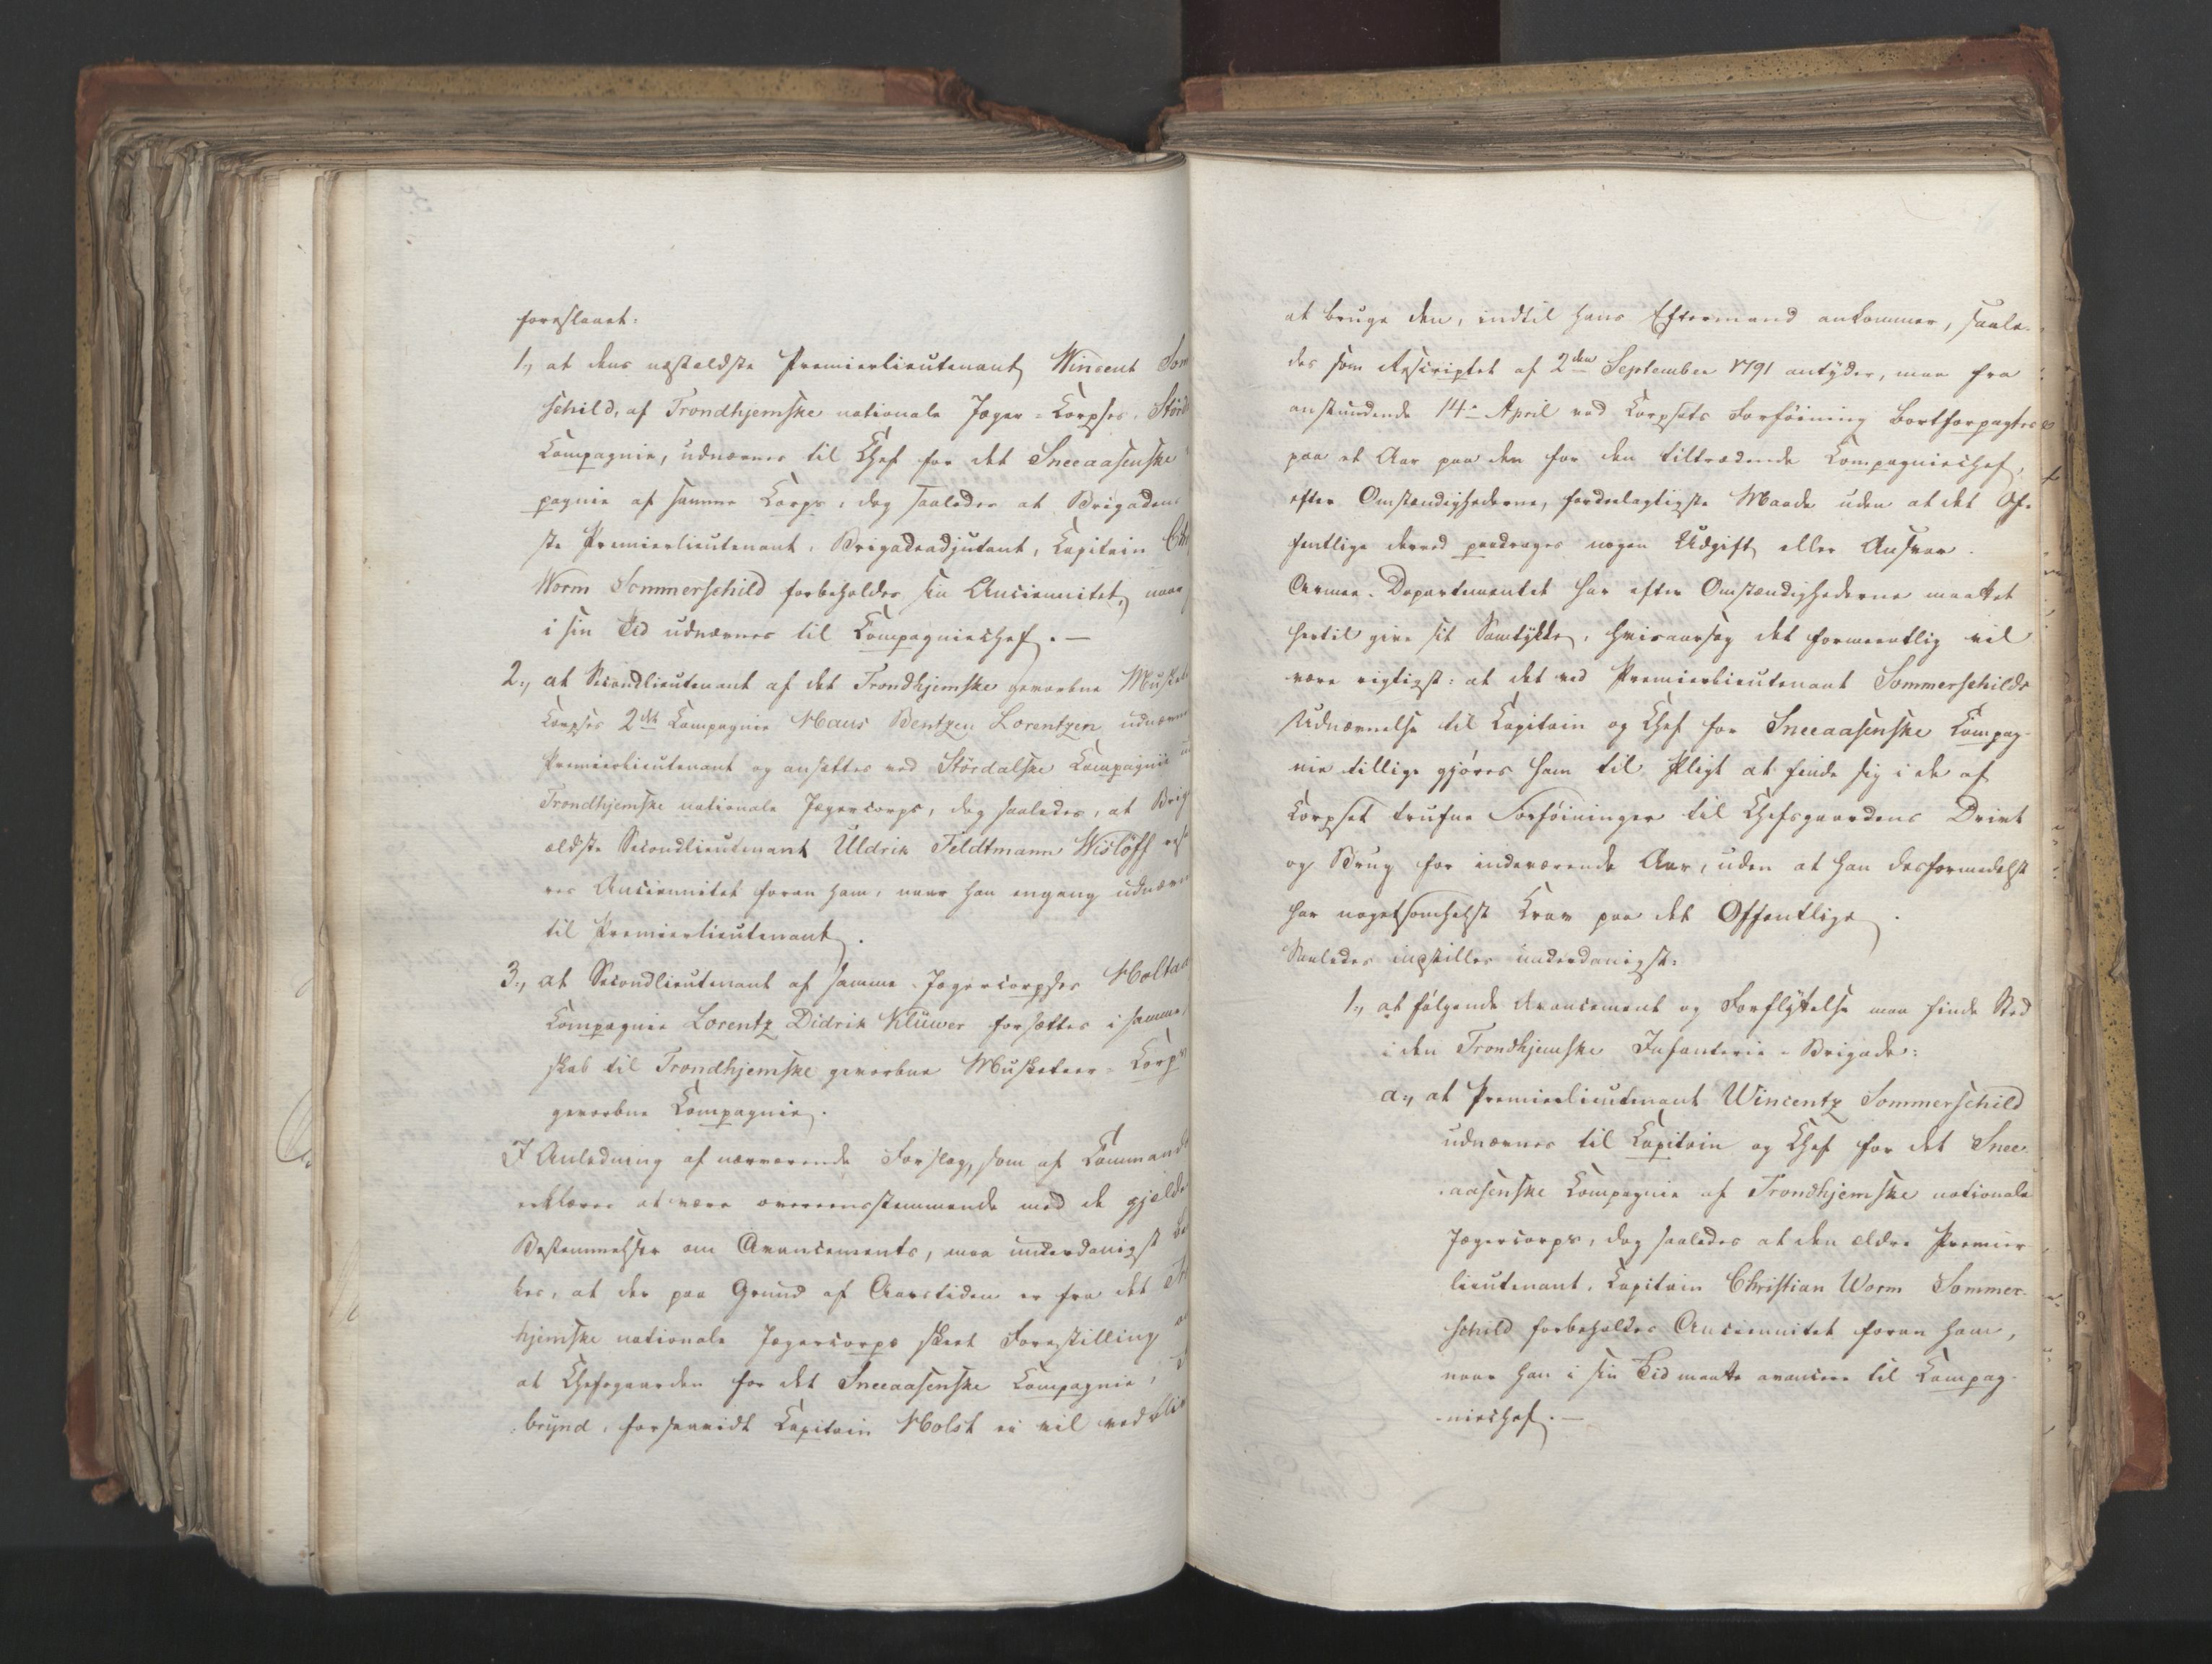 foreslaaet:
1., at dens næstældste Premierlieutenant Wincent Som
schild, af Trondhjemske nationale Jæger-Corpses Störd
Compagnie, udnævnes til Chef for det Sneeaasenske
pagnie af samme Corps, dog saaledes at Brigadens
ste Premierlieutenant, Brigadeadjutant, Capitain Chr
Worm Sommerschild forbeholdes sin Anciennitet, naar
i sin Tid udnævnes til Compagniechef.—
2., at Secondlieutenant af det Trondhjemske gevorbne Musket
Corpses 2det Compagnie Haus Bentzen Lorentzen udnævnes
Premierlieutenant og ansættes ved Stördalske Compagnie
Trondhjemske nationale Jægercorps, dog saaledes, at Brig
ældste Secondlieutenant Uldrik Feldtmann Wislöff
res Anciennitet foran ham, naar han engang udnævn
til Premierlieutenant.
3., at Secondlieutenant af samme Jægercorpses Holtaa
Compagnie Lorentz Didrik Klüwer forsættes i samme
skab til Trondhjemske gevorbne Musketeer-Corps
gevorbne Compagnie.
I Anledning af nærværende Forslag, som af Commande
erklæres at være overeensstemmende med de gjælde
Bestemmelser om Avancements, maa underdanigst be
kes, at der paa Grund af Aarstiden er fra det Tr
hjemske nationale Jægercorps skeet Forestilling
at Chefsgaarden for det Sneeaasenske Compagnie,
brynd, forsaavidt Capitain Holst ei vil vedbliv
at bruge den, indtil hans Eftermand ankommer, saale-
des som Rescriptet af 2den September 1791 antyder, maa fra
anstundende 14de April ved Corpsets Forföining bortforpagtes
paa et Aar paa den for den tiltrædende Compagniechef,
efter Omstændighederne, fordeelagtigste Maade uden at det Of-
fentlige derved paadrages nogen Udgift eller Ansvar.
Armee-Departementet har efter Omstændighederne maattet
hertil give sit Samtykke, hvisaarsag det formeentlig vil
være rigtigst: at det ved Premierlieutenant Sommerschilds
Udnævnelse til Capitain og Chef for Sneeaasenske Compag-
nie tillige gjöres ham til Pligt at finde sig i de af
Corpset trufne Forföininger til Chefsgaardens Drivt
og Brug for indeværende Aar, uden at han desformedelst
har nogetsomhelst Krav paa det Offentlige.
Saaledes indstilles underdanigst:
1., at fölgende Avancement og Forflyttelse maa finde Sted
i den Trondhjemske Infanterie-Brigade:
a., at Premierlieutenant Wincentz Sommerschild
udnævnes til Capitain og Chef for det Snee-
aasenske Compagnie af Trondhjemske nationale
Jægercorps, dog saaledes at den ældre Premier-
lieutenant, Capitain Christian Worm Sommer-
schild forbeholdes Anciennitet foran ham,
naar han i sin Tid maatte avancere til Compag-
niechef.—